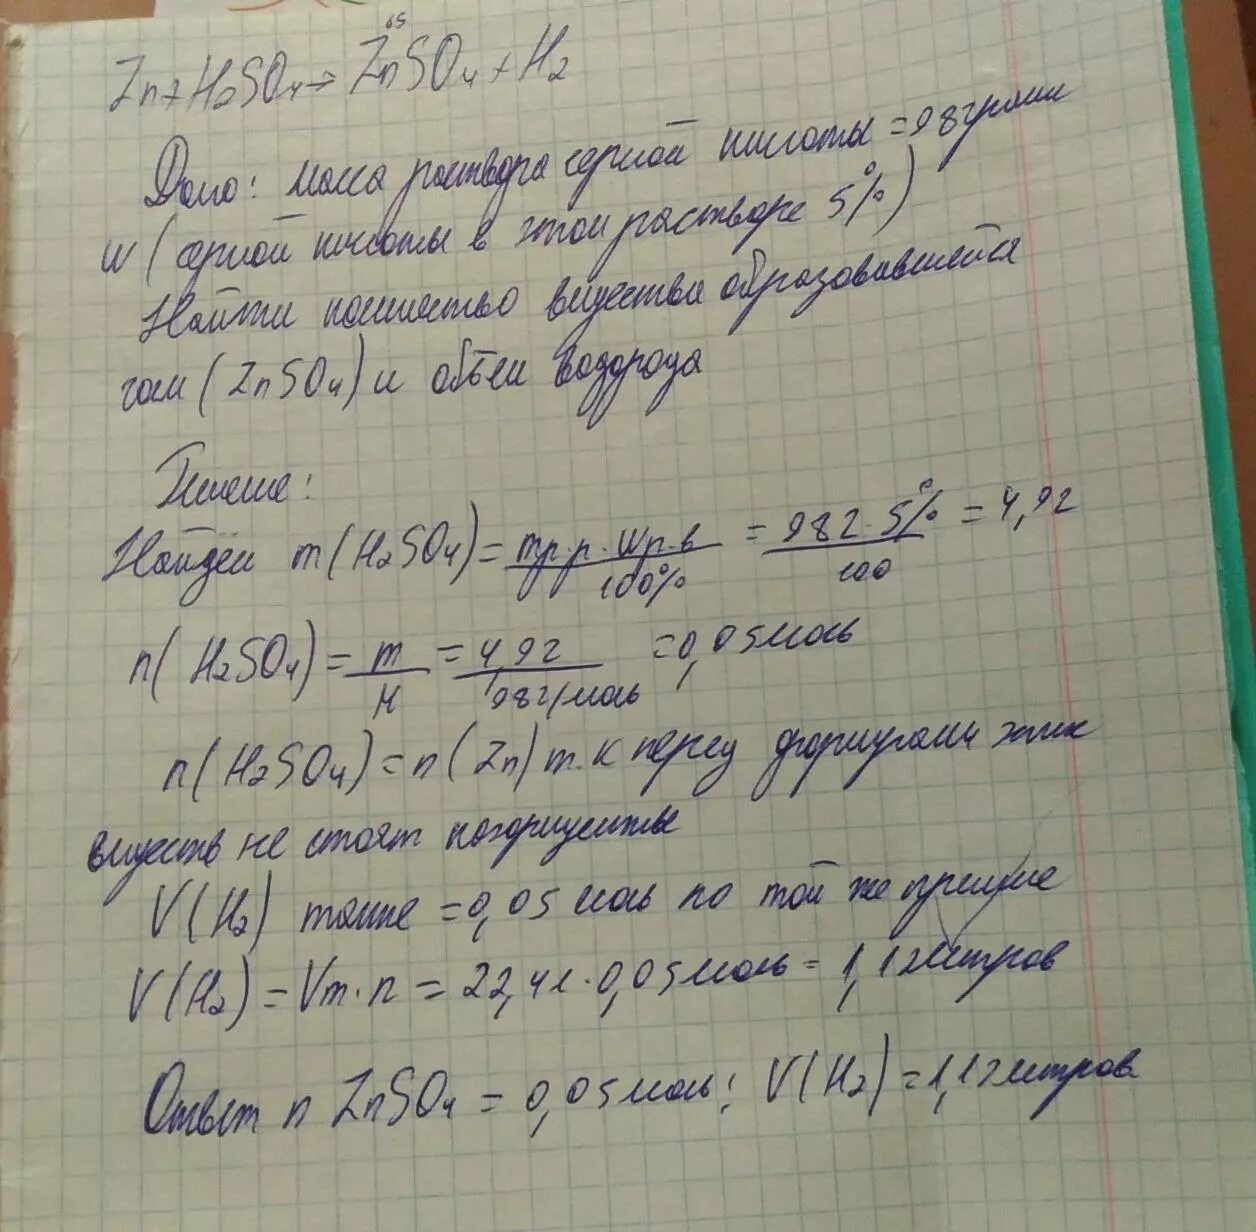 65
Zn + H2SO4 → ZnSO4 + H2
Дано: масса раствора серной кислоты = 98 грамм
w (серной кислоты в этом растворе 5%)
Найти количество вещества образовавшейся
соли (ZnSO4) и объем водорода
Решение:
Найдем m(H2SO4) = mр.р. · wр.в / 100% = 98г · 5% / 100 = 4,9г
n(H2SO4) = m / M = 4,9г / 98г/моль = 0,05 моль
n(H2SO4) = n(Zn) т.к перед формулами этих
веществ не стоят коэффициенты
V(H2) также = 0,05 моль по той же причине
V(H2) = Vm · n = 22,4л · 0,05 моль = 1,12 литров
Ответ n ZnSO4 = 0,05 моль; V(H2) = 1,12 литров